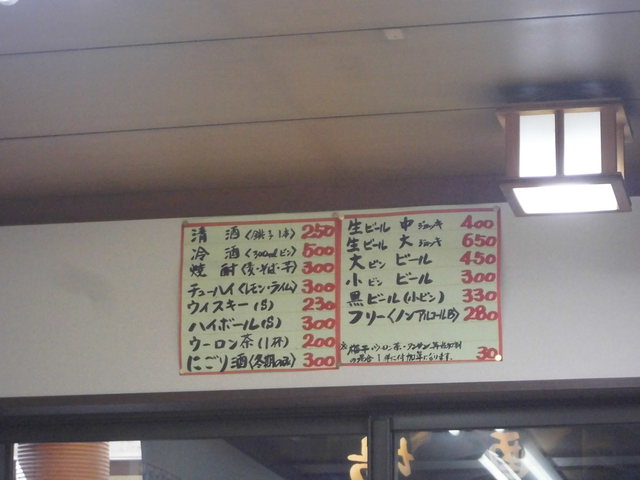 清酒(銚子1本) 250
冷酒(300mlビン) 500
焼酎(麦・そば・芋) 300
チューハイ(レモン・ライム) 300
ウイスキー(S) 230
ハイボール(S) 300
ウーロン茶(1杯) 200
にごり酒(冬期のみ) 300
生ビール 中 ジョッキ 400
生ビール 大 ジョッキ 650
大ビン ビール 450
小ビン ビール 300
黒ビール(小ビン) 330
フリー(ノンアルコールB) 280
梅干・ウーロン茶・
の場合1件に付加算になります。 30